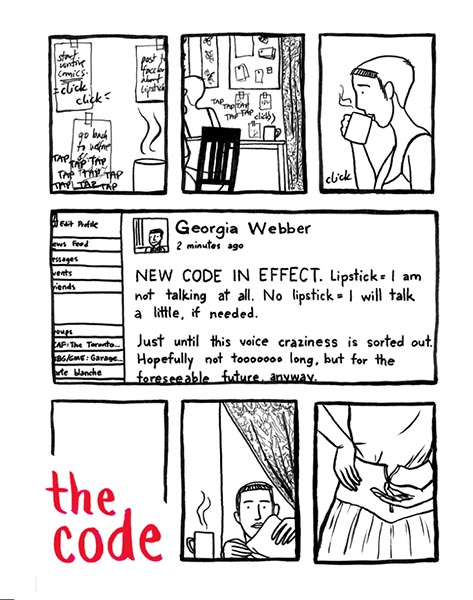 start
writing
comics.
click
click
post to
facebook
about
lipstick
go back
to
TAP TAP TAP
TAP TAP TAP
TAP TAP TAP
TAP
TAP TAP
TAP TAP
click
click
Edit Profile
ews Feed
ssages
vents
riends
oups
CAF: The Toronto...
BG/GME: Garage...
arte blanche
Georgia Webber
2 minutes ago
NEW CODE IN EFFECT. Lipstick = I am
not talking at all. No lipstick = I will talk
a little, if needed.
Just until this voice craziness is sorted out.
Hopefully not tooooooo long, but for the
foreseeable future, anyway.
the
code